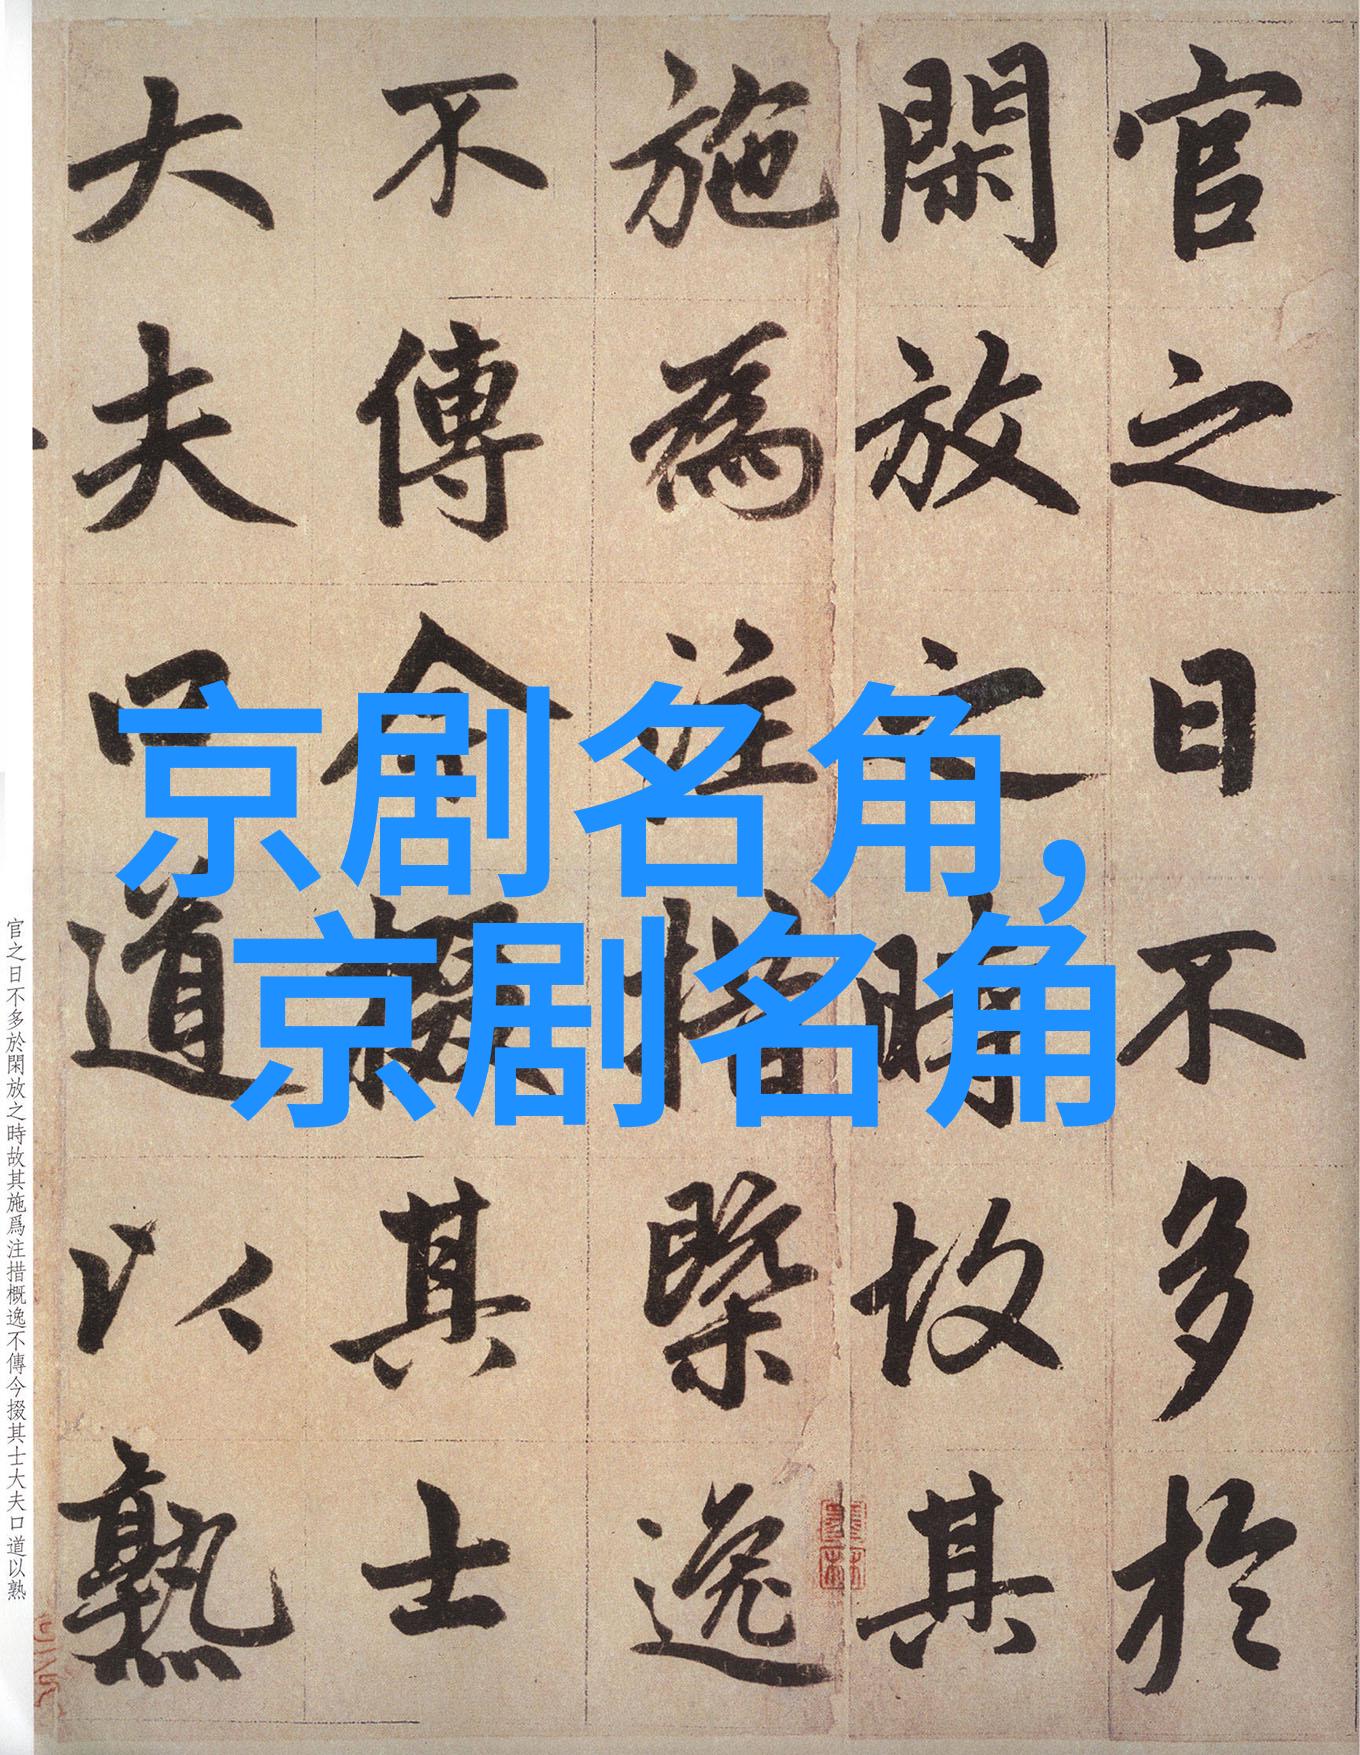 官之日不多於
閑放之時故其
施為注措槩逸
不傳今掇其士
大夫口道以熟
京剧名角，
京剧名角
官之日不多於閑放之時故其施爲注措概逸不傳今掇其士大夫口道以熟